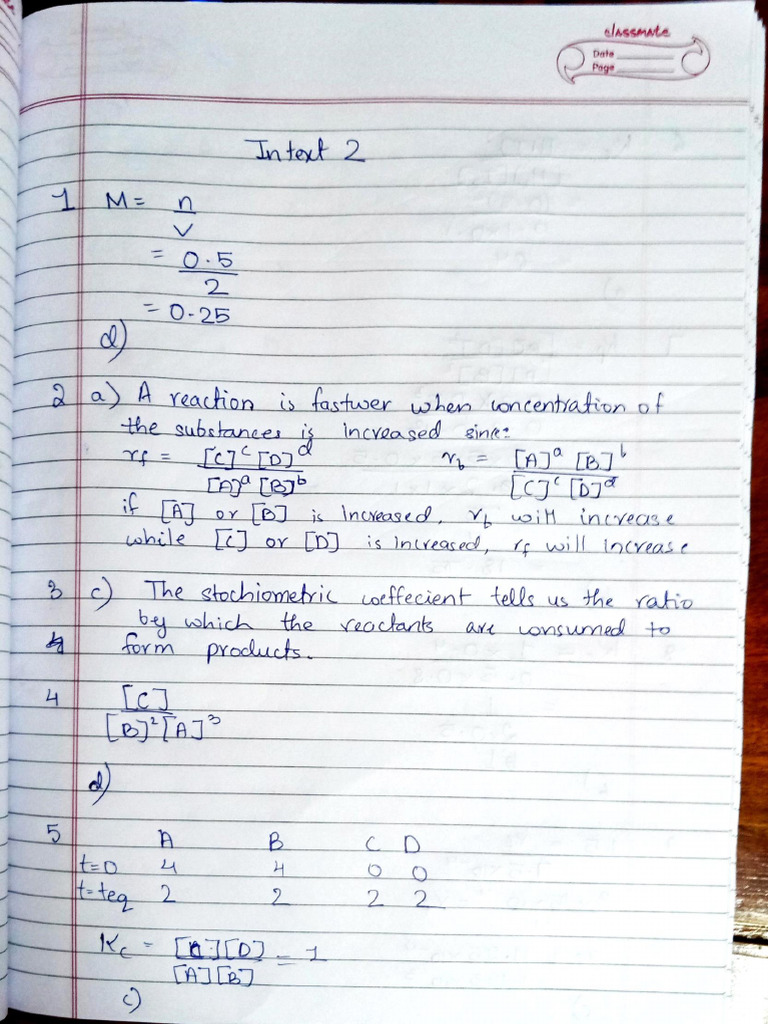 classmate
Date
Page
Intext 2
1 M = n/V
= 0.5/2
= 0.25
d)
2 a) A reaction is fastwer when concentration of
the substances is increased since:
rf = [C]^c [D]^d / [A]^a [B]^b    rb = [A]^a [B]^b / [C]^c [D]^d
if [A] or [B] is increased, rb will increase
while [C] or [D] is increased, rf will increase
3 c) The stochiometric coeffecient tells us the ratio
by which the reactants are consumed to
form products.
4 [C] / [B]²[A]³
d)
5 A B C D
t=0 4 4 0 0
t=teq 2 2 2 2
Kc = [C][D] / [A][B] = 1
c)